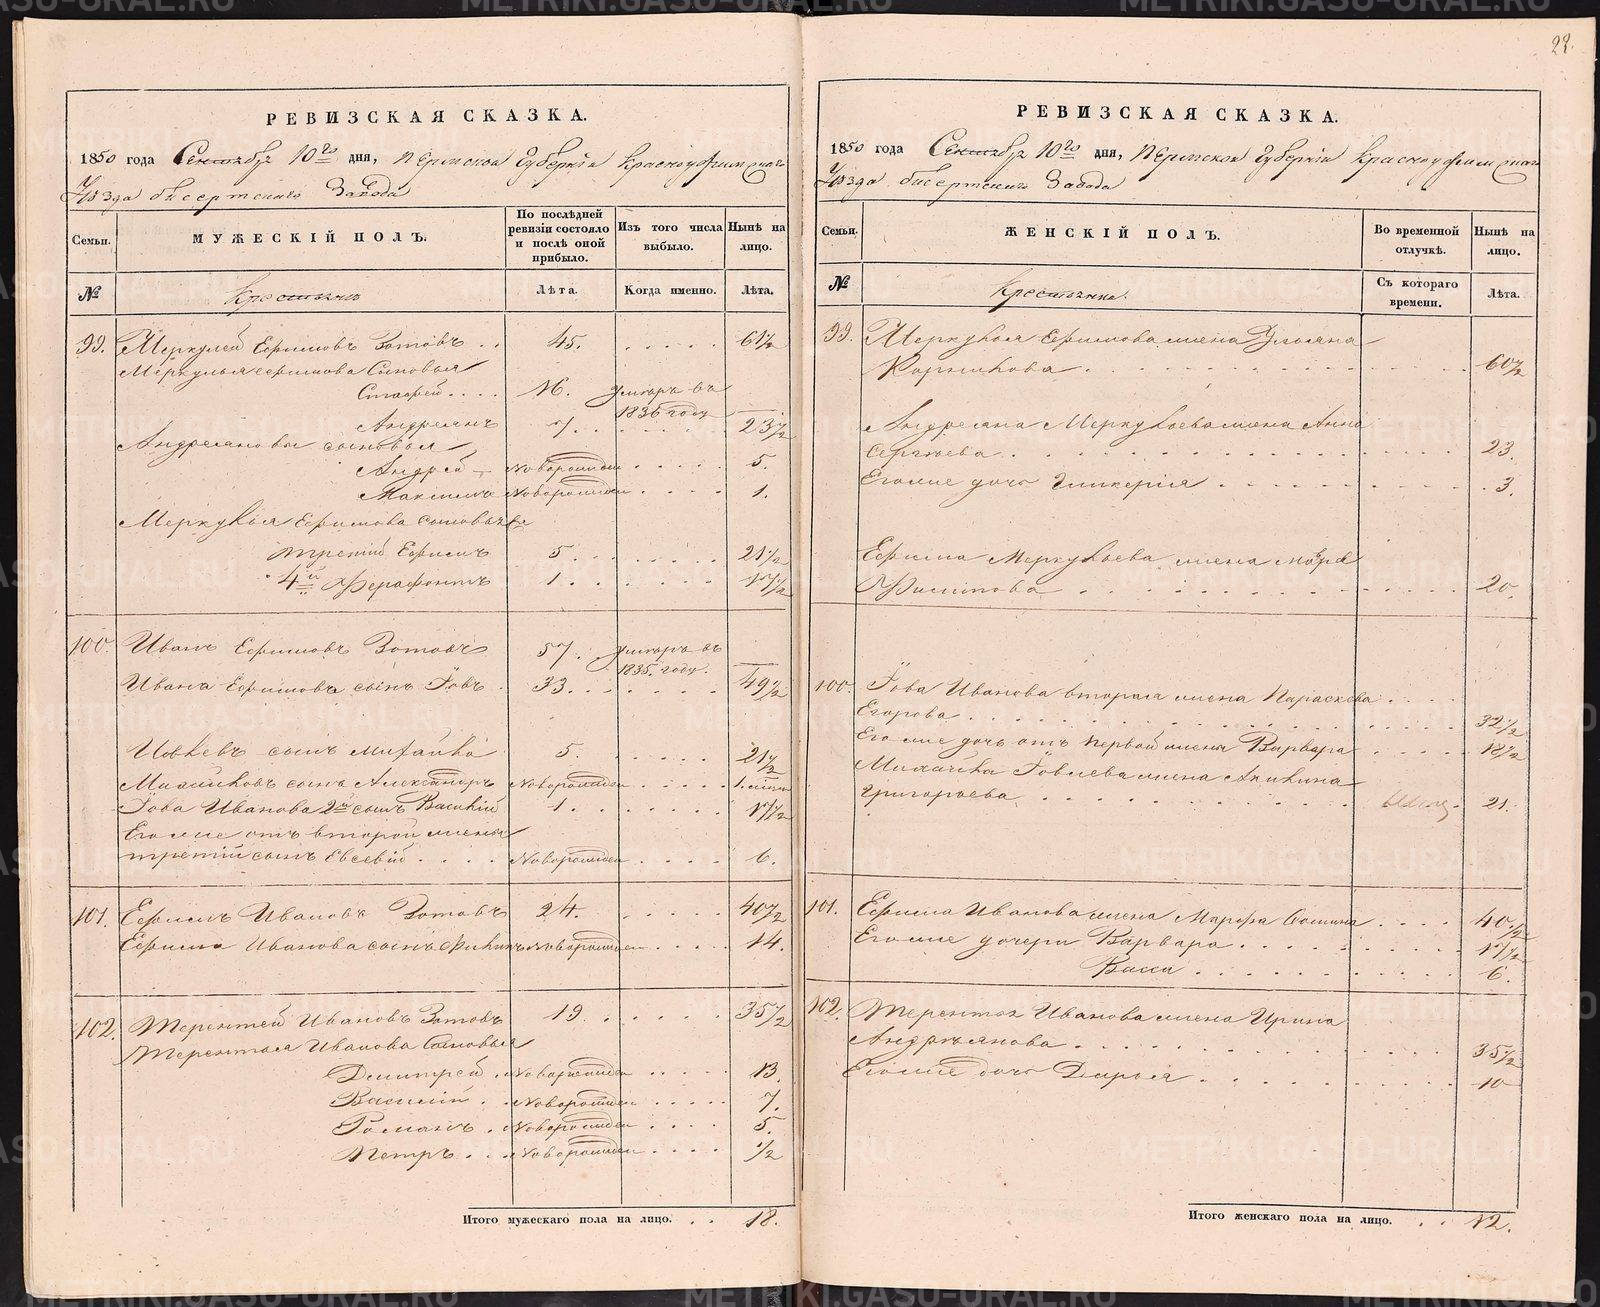 22.
РЕВИЗСКАЯ СКАЗКА.
1850 года Сентября 10го дня, Пермской Губернiи Красноуфимскаго
Уѣзда Бисертскаго Завода
Семьи.
МУЖЕСКIЙ ПОЛЪ.
По послѣдней ревизiи состояло и послѣ оной прибыло.
Изъ того числа выбыло.
Нынѣ на лицо.
№
Крестьяне
Лѣта.
Когда именно.
Лѣта.
99. Меркулей Ефимовъ Зотовъ . . 45. . . . . . 61½
Меркулья Ефимова Сыновья
Старей . . . . 16. умеръ въ 1836 году
Андреянъ 7. . . . . . 23½
Андреяновы сыновья
Андрей Новорожден . . . . 5.
Максимъ Новорожден . . . . 1.
Меркулья Ефимова сыновья
третiй Ефимъ 5. . . . . . 21½
4й Ферафонтъ 1. . . . . . 17½
100. Иванъ Ефимовъ Зотовъ 57. умеръ въ 1835. году.
Ивана Ефимова сынъ Iовъ. 33. . . . . . 49½
Иовлевъ сынъ Михайло 5. . . . . . 21½
Михайловъ сынъ Александръ Новорожден . . . . 1.
Iова Иванова 2й сынъ Василiй 1. . . . . . 17½
Его же отъ второй жены
третiй сынъ Евсевiй . . . . Новорожден . . . . 6.
101. Ефимъ Ивановъ Зотовъ 24. . . . . . 40½
Ефима Иванова сынъ Новорожден . . . . 14.
102. Терентей Ивановъ Зотовъ 19. . . . . . 35½
Терентья Иванова Сыновья
Дмитрей . Новорожден . . . . 13.
Василiй . . Новорожден . . . . 7.
Романъ . Новорожден . . . . 5.
Петръ . . . Новорожден . . . . ½
Итого мужескаго пола на лицо. . . 18.
РЕВИЗСКАЯ СКАЗКА.
1850 года Сентября 10го дня, Пермской Губернiи Красноуфимскаго
Уѣзда Бисертскаго Завода
Семьи.
ЖЕНСКIЙ ПОЛЪ.
Во временной отлучкѣ.
Нынѣ на лицо.
№
Крестьяне.
Съ котораго времени.
Лѣта.
99. Меркулья Ефимова жена Ульяна
Корнилова . . . . . . 60½
Андреяна Меркульева жена Анна
Сергѣева . . . . . . 23.
Его же дочь Гликерiя . . . . . . 3.
Ефима Меркульева жена Марѳа
Филипова . . . . . . 20.
100. Iова Иванова вторая жена Параскева
Егорова . . . . . . 32½
Его же дочь отъ первой жены Варвара . . . . 18½
Михайла Iовлева жена Акилина
Григорьева . . . . . . 21.
101. Ефима Иванова жена Марфа Фомина . . . . 40½
Его же дочери Варвара . . . . . . 17½
Васса . . . . . . 6.
102. Терентья Иванова жена Ирина
Андреянова . . . . . . 35½
Его же дочь Дарья . . . . . . 10
Итого женскаго пола на лицо. . . 12.
METRIKI.GASO-URAL.RU